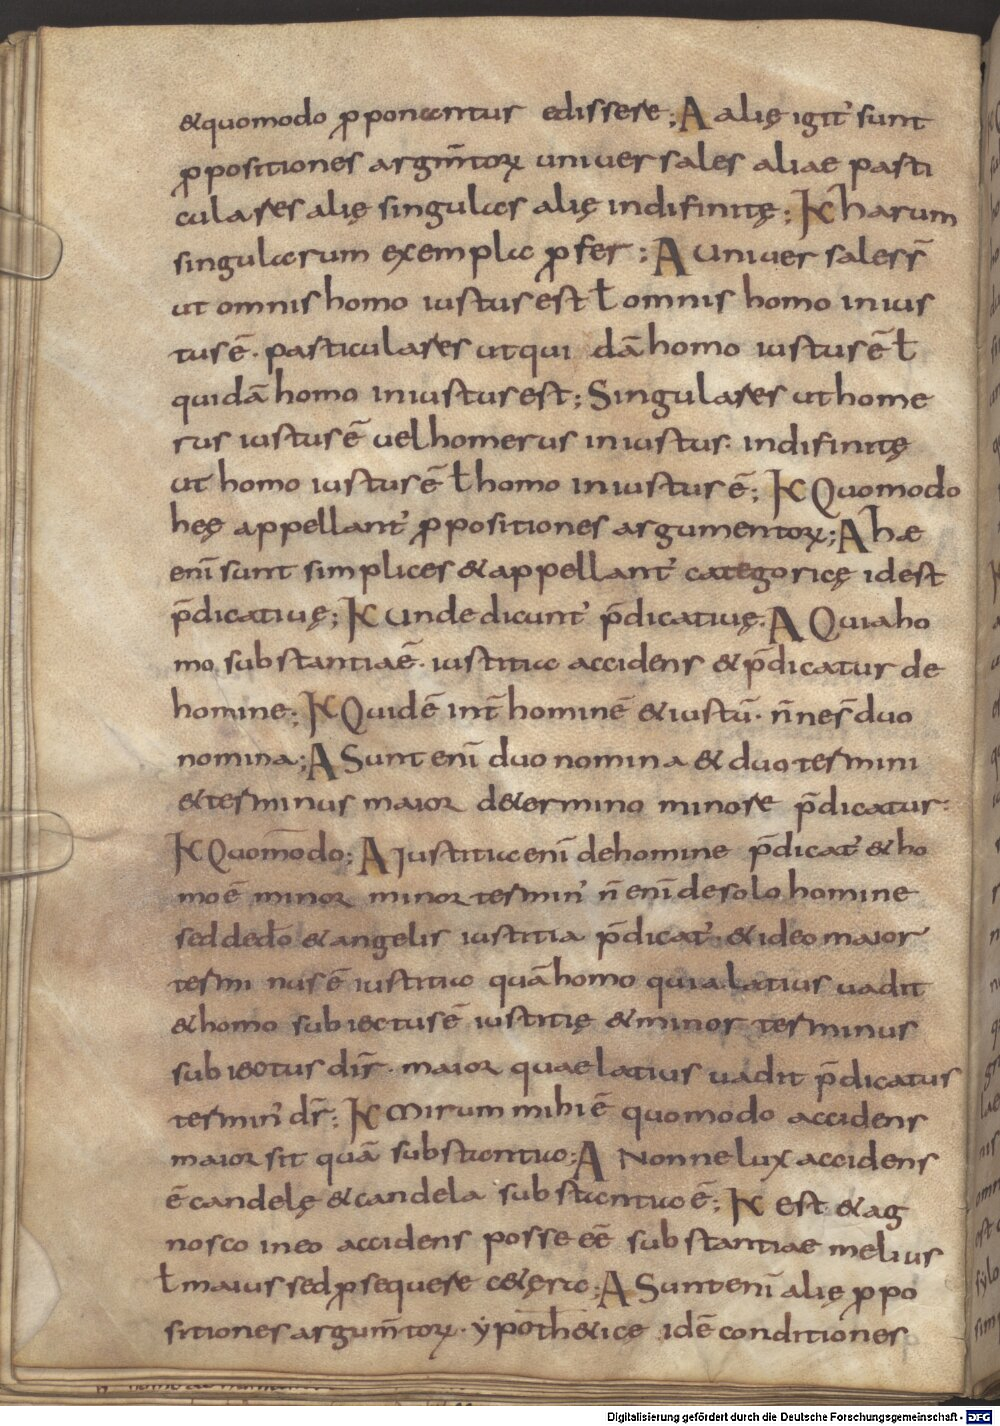 &quomodo ꝓponantur edissere; A alię igit᾽ sunt
ꝓpositiones argum̅torꝝ uniuersales aliae parti
culares alię singulares alię indifinitę; K harum
singularum exempla ꝓfer; A Uniuersales s̅
ut omnis homo iustus est ł omnis homo inius
tus ē. particulares ut qui dā homo iustus ē ł
quidā homo iniustus est; Singulares ut home
rus iustus ē uel homerus iniustus. indifinitę
ut homo iustus ē ł homo iniustus ē; K Quomodo
hęę appellant᾽ ꝓpositiones argumentorꝝ; A hae
eni̅ sunt simplices & appellant᾽ categoricę id est
p̅dicatiuę; K Unde dicunt᾽ p̅dicatiuę. A Quia ho
mo substantia ē. iustitia accidens & p̅dicatur de
homine; K Quid ē int̅ hominē & iustū. n̅nes̅ duo
nomina; A Sunt eni̅ duo nomina & duo termini
& terminus maior de termino minore p̅dicatur:
K Quom̅odo; A Iustitia eni̅ de homine p̅dicat᾽ & ho
mo ē minor minor termin᾽ n̅ eni̅ de solo homine
sed de do̅ & angelis iustitia p̅dicat᾽. & ideo maior
termi nus ē iustitia quā homo quia latius uadit
& homo subiectus ē iustitię & minor terminus
subiectus dir̅. maior quae latius uadit p̅dicatus
termin᾽ dr̅: K Mirum mihi ē quomodo accidens
maior sit quā substantia: A Nonne lux accidens
ē candelę & candela substantia ē; K Est & ag
nosco in eo accidens posse eē̅ substantiae melius
ł maius sed ꝓsequere c&ęra: A Sunt eni̅ alię ꝓpo
sitiones argum̅torꝝ. ẏpoth&icę id ē conditiones
Digitalisierung gefördert durch die Deutsche Forschungsgemeinschaft - DFG